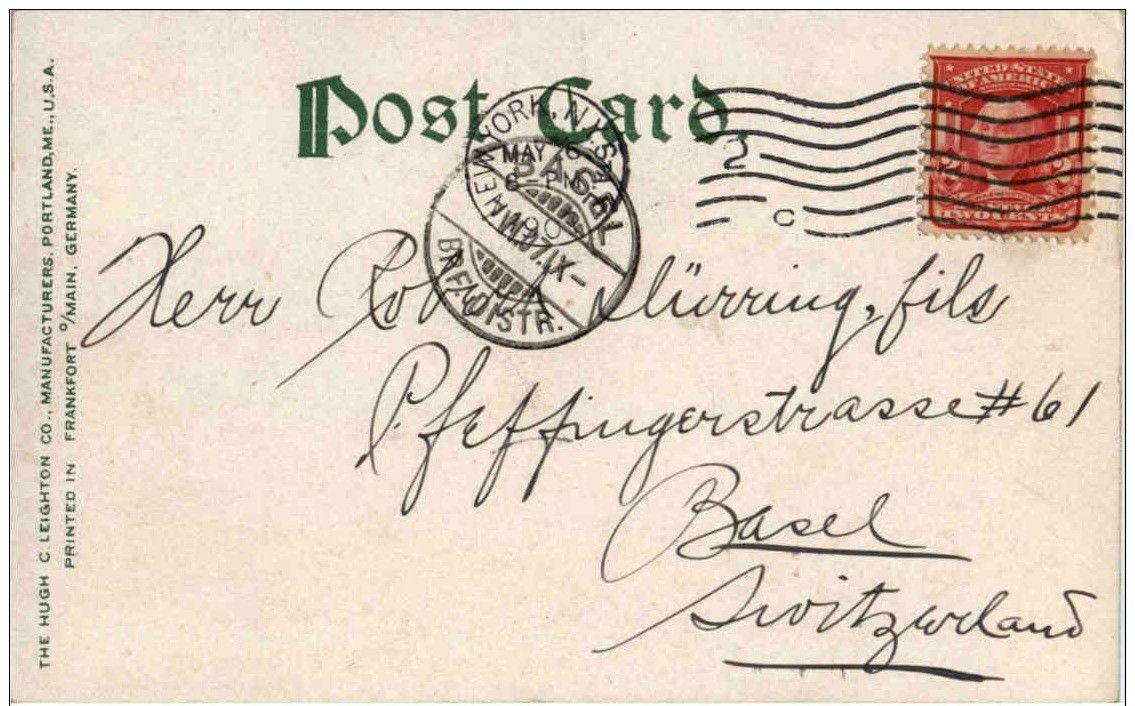 Post Card.
THE HUGH C. LEIGHTON CO., MANUFACTURERS, PORTLAND, ME., U.S.A.
PRINTED IN FRANKFORT O/MAIN, GERMANY.
NEW YORK, N.Y. STA.
MAY
8 PM
190
BASEL
BRF. DISTR.
2
C
UNITED STATES
OF AMERICA
TWO CENTS
Herr Robert Dürring, fils
Pfeffingerstrasse #61
Basel
Switzerland